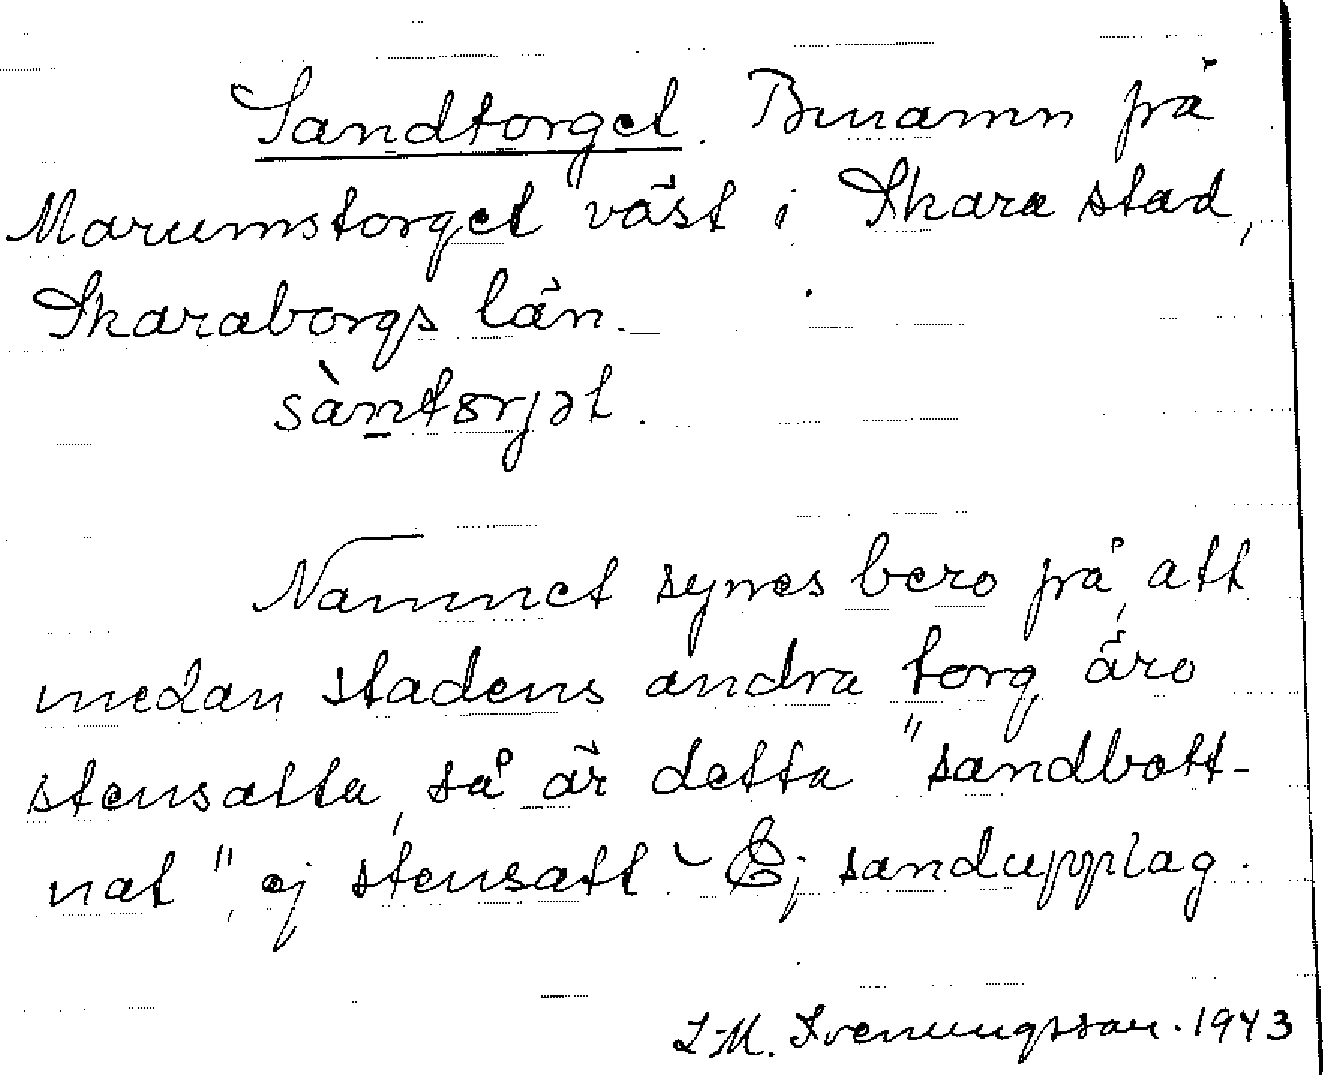 Sandtorget. Binamn på
Marumstorget väst i Skara stad,
Skaraborgs län.
sàntorjət.
Namnet synes bero på, att
medan stadens andra torg äro
stensatta, så är detta "sandbott-
nat", ej stensatt. - Ej sandupplag.
L-M. Svenungsson. 1943